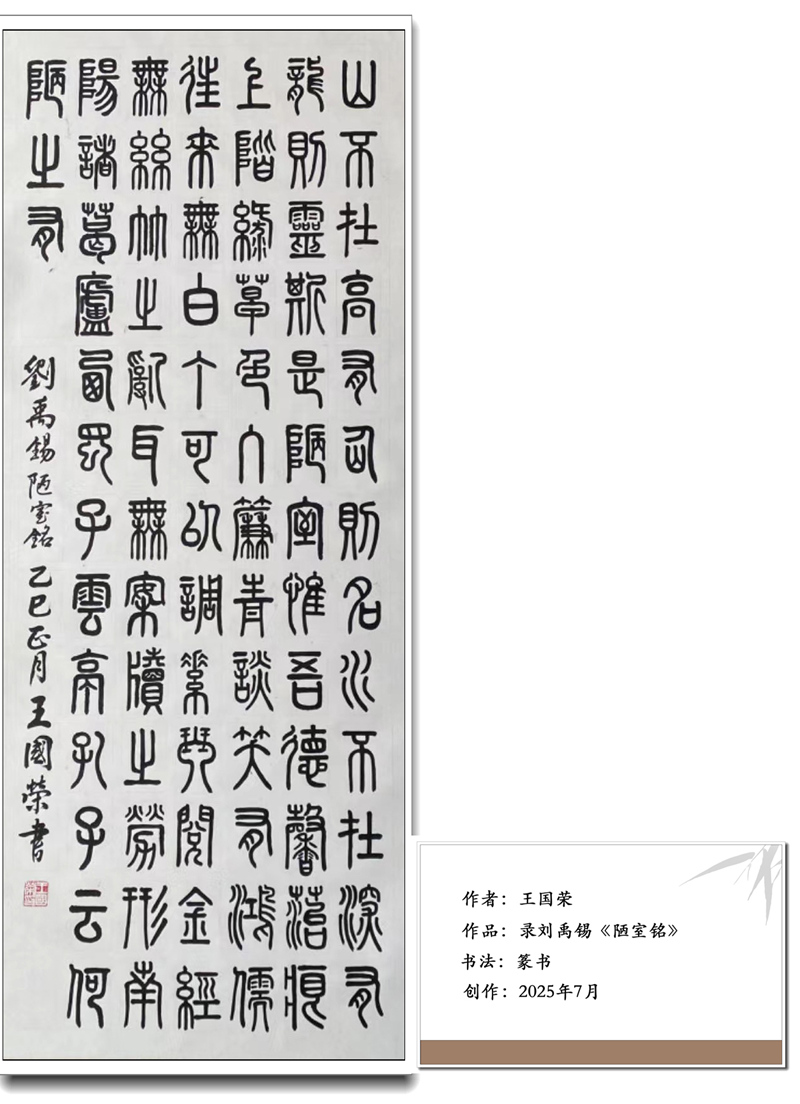 山不在高有仙則名水不在深有
龍則靈斯是陋室惟吾德馨苔痕
上階綠草色入簾青談笑有鴻儒
往來無白丁可以調素琴閱金經
無絲竹之亂耳無案牘之勞形南
陽諸葛廬西蜀子雲亭孔子云何
陋之有
劉禹錫陋室銘 乙巳正月 王國榮書
作者：王国荣
作品：录刘禹锡《陋室铭》
书法：篆书
创作：2025年7月